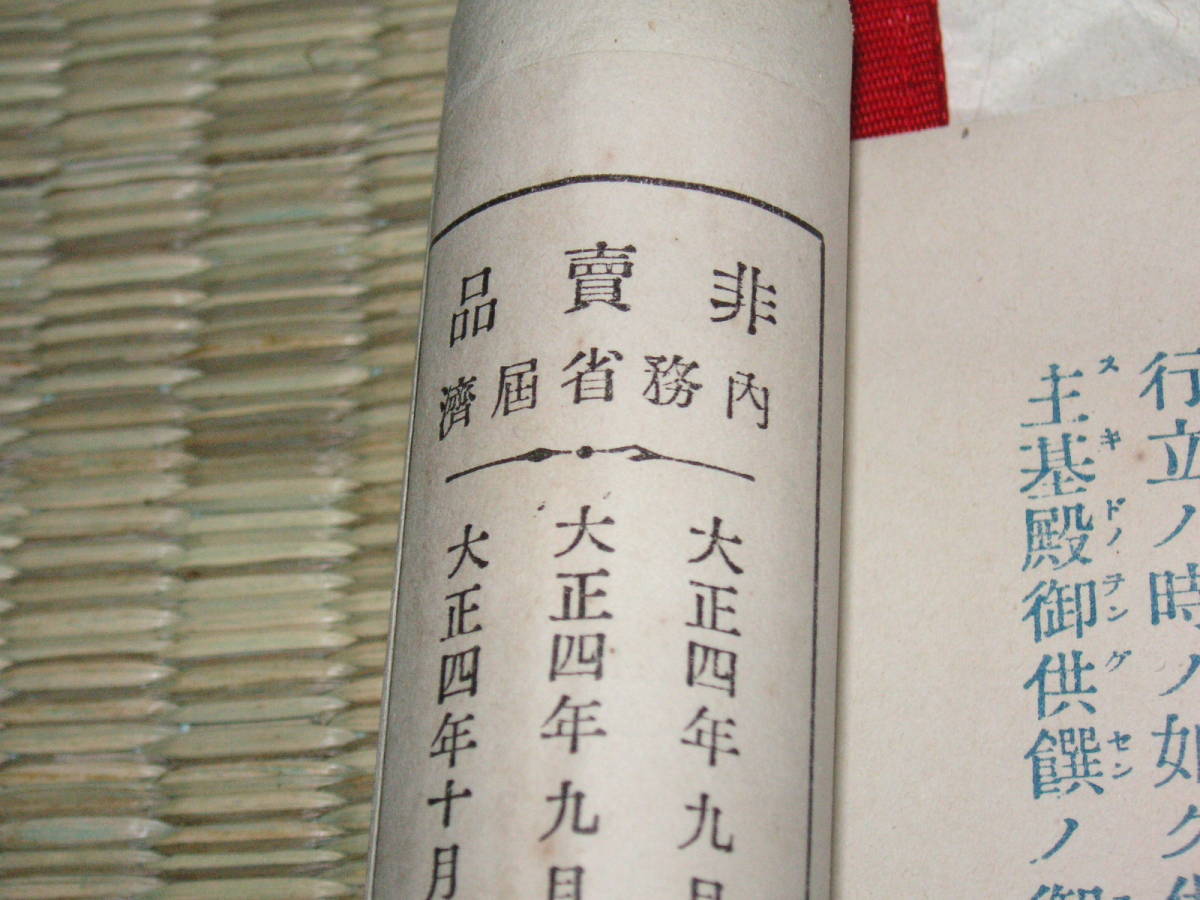 非賣品
內務省屆濟
大正四年九月
大正四年九月
大正四年十月
行立ノ時ノ如ク
主基殿御供饌ノ御
スキドノヲングセン